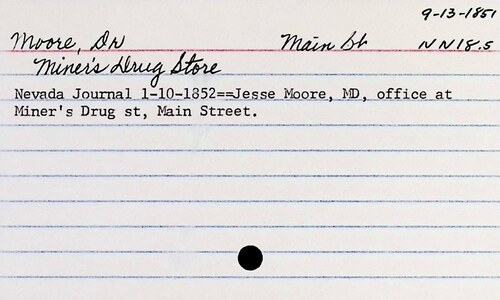 9-13-1851
Moore, Dr Main St NN18.5
Miner's Drug Store
Nevada Journal 1-10-1852==Jesse Moore, MD, office at
Miner's Drug st, Main Street.